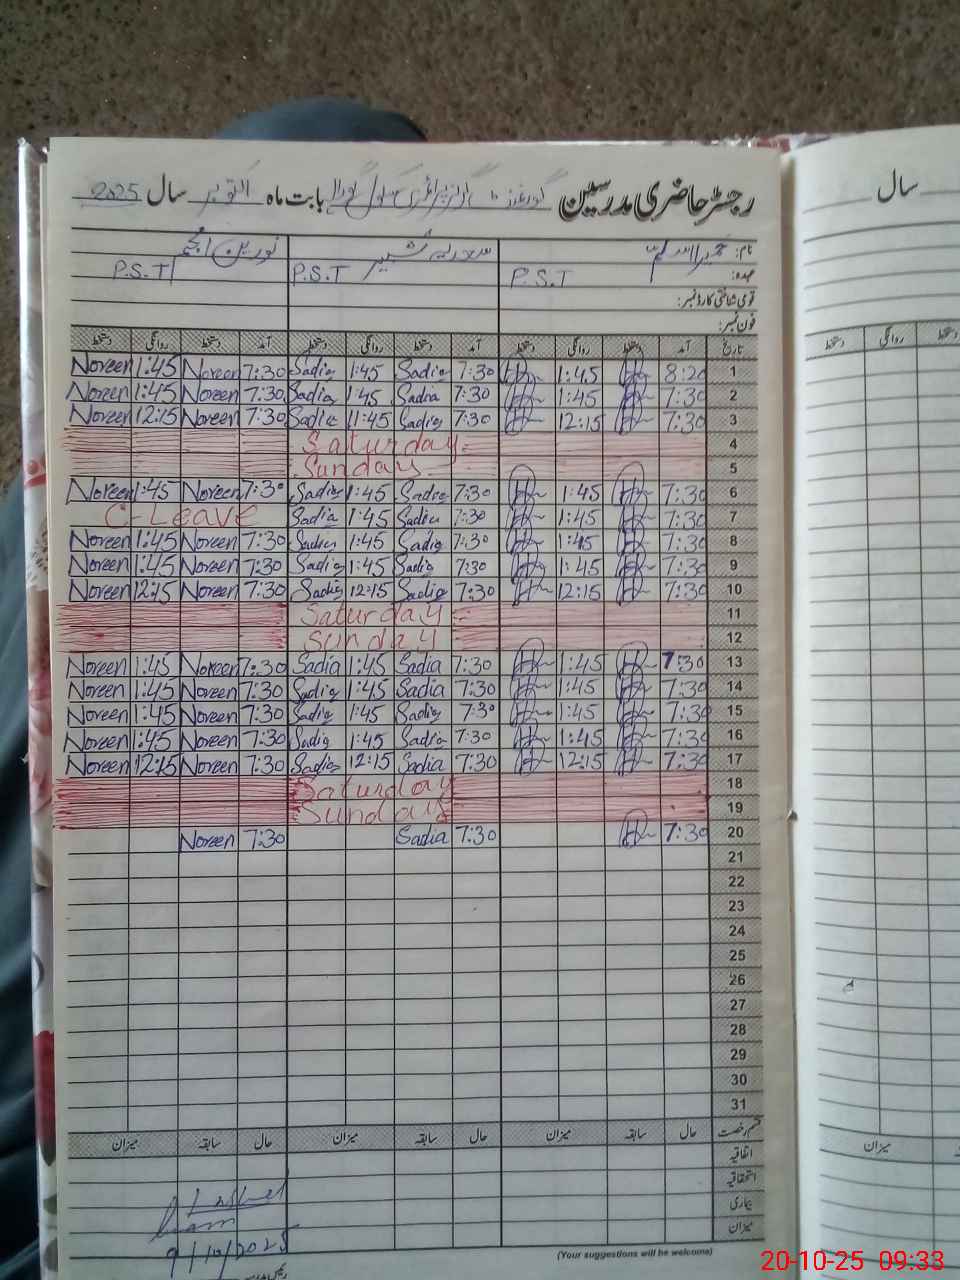 رجسٹر حاضری مدرسین گورنمنٹ گرلز پرائمری سکول بابت ماہ اکتوبر سال 2025
نام: سعدیہ شبیر نورین انجم
عہدہ: P.S.T P.S.T P.S.T
قومی شناختی کارڈ نمبر:
فون نمبر:
تاریخ آمد دستخط روانگی دستخط آمد دستخط روانگی دستخط آمد دستخط روانگی دستخط
1 8:20 1:45 7:30 Sadia 1:45 Sadia 7:30 Noreen 1:45 Noreen
2 7:30 1:45 7:30 Sadia 1:45 Sadia 7:30 Noreen 1:45 Noreen
3 7:30 12:15 7:30 Sadia 11:45 Sadia 7:30 Noreen 12:15 Noreen
4 Saturday
5 Sunday
6 7:30 1:45 7:30 Sadia 1:45 Sadia 7:30 Noreen 1:45 Noreen
7 7:30 1:45 7:30 Sadia 1:45 Sadia C-Leave
8 7:30 1:45 7:30 Sadia 1:45 Sadia 7:30 Noreen 1:45 Noreen
9 7:30 1:45 7:30 Sadia 1:45 Sadia 7:30 Noreen 1:45 Noreen
10 7:30 12:15 7:30 Sadia 12:15 Sadia 7:30 Noreen 12:15 Noreen
11 Saturday
12 Sunday
13 7:30 1:45 7:30 Sadia 1:45 Sadia 7:30 Noreen 1:45 Noreen
14 7:30 1:45 7:30 Sadia 1:45 Sadia 7:30 Noreen 1:45 Noreen
15 7:30 1:45 7:30 Sadia 1:45 Sadia 7:30 Noreen 1:45 Noreen
16 7:30 1:45 7:30 Sadia 1:45 Sadia 7:30 Noreen 1:45 Noreen
17 7:30 12:15 7:30 Sadia 12:15 Sadia 7:30 Noreen 12:15 Noreen
18 Saturday
19 Sunday
20 7:30 7:30 Sadia 7:30 Noreen
21
22
23
24
25
26
27
28
29
30
31
قسم رخصت حال سابقہ میزان حال سابقہ میزان حال سابقہ میزان
اتفاقیہ
استحقاقیہ
بیماری
میزان
9/10/2025
(Your suggestions will be welcome)
سال
دستخط روانگی دستخط
میزان
20-10-25 09:33